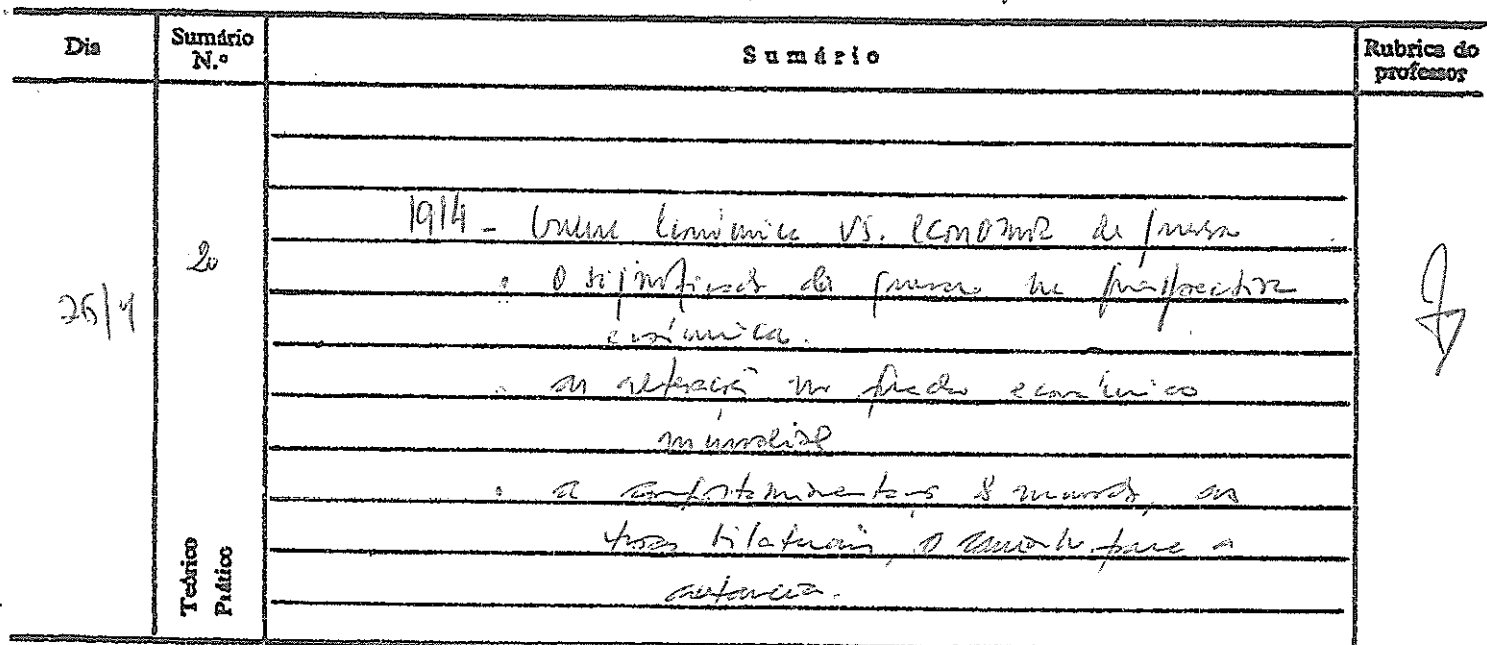 Dia
Sumário N.º
Sumário
Rubrica do professor
26/4
20
1914 - Guerra Económica vs. economia de guerra
. O significado da guerra na perspectiva
económica.
. as alterações no quadro económico
mundial
. a compartimentação do mundo, as
trocas bilaterais, o caminho para a
autarcia.
Teórico
Prático